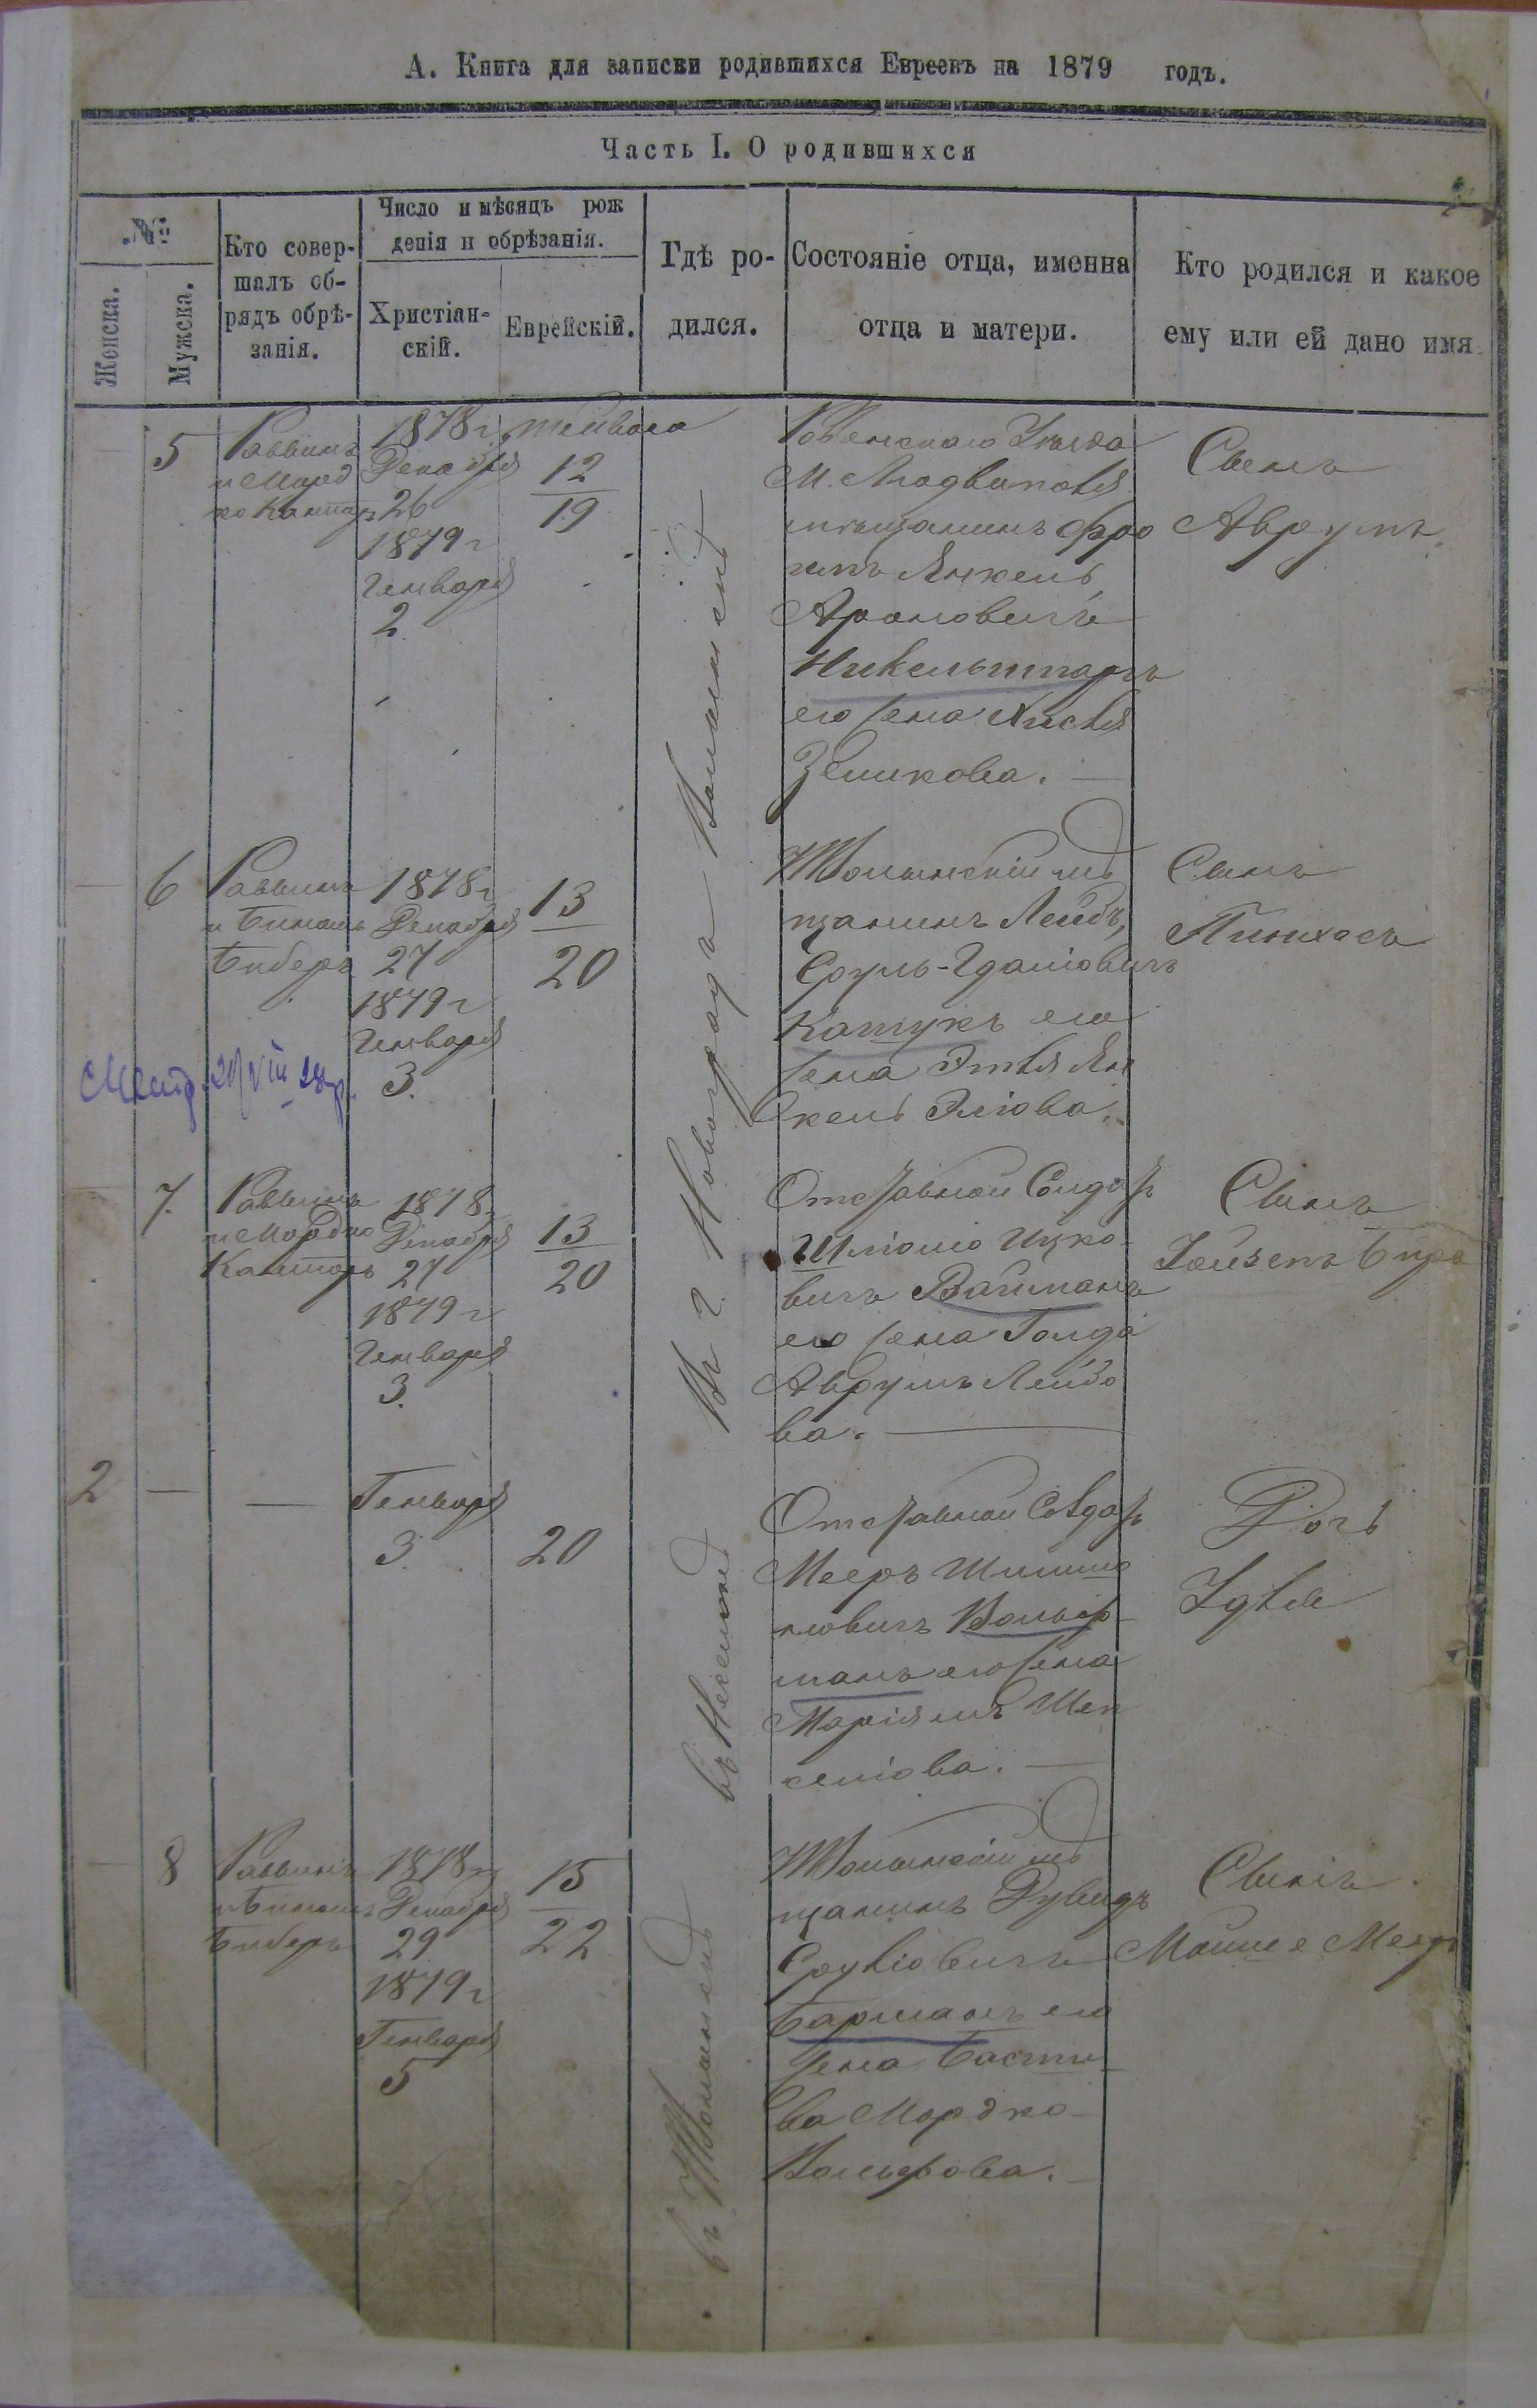 А. Книга для записки родившихся Евреевъ на 1879 годъ.
Часть I. О родившихся
№
Женска.
Мужска.
Кто совер-
шалъ об-
рядъ обрѣ-
занія.
Число и мѣсяцъ рож
денія и обрѣзанія.
Христіан-
скій.
Еврейскій.
Гдѣ ро-
дился.
Состояніе отца, именна
отца и матери.
Кто родился и какое
ему или ей дано имя
5
Раввинъ
и Морд
ко Канторъ
1878 г.
Декабря
26
1879 г
Генваря
2.
тейваса
12
19
Въ г. Новоградъ Волынскѣ
Ровенскаго Уѣзда
М.
мѣщанинъ Фро
имъ Янкель
Ароновичъ
его жена
Зеликова.
Сынъ
Аврумъ
6
Раввинъ
и Биніомъ
Биберъ
1878 г
Декабря
27
1879 г
Генваря
3.
13
20
Н Волынскій мѣ
щанинъ Лейбъ,
Сруль-Гдаліовичъ
Кацукъ его
жена Этля Ян
кель Эліова.
Сынъ
Пинхасъ
7.
Раввинъ
и Мордко
Канторъ
1878 г
Декабря
27
1879 г
Генваря
3.
13
20
Отставной Солдатъ
Шліомо Ицко-
вичъ Вайнманъ
его жена Голда
Аврумъ Лейбо
ва.
Сынъ
2
Генваря
3.
20
Отставной Солдатъ
Мееръ Шлимо
новичъ Вольф-
манъ его жена
Маріямъ Шек
селіова.
Дочь
8
Раввинъ
и Биніомъ
Биберъ
1878 г
Декабря
29
1879 г
Генваря
5
15
22
въ Н Волынскѣ
Н Волынскій мѣ
щанинъ Дувидъ
Сруліовичъ
Барманъ его
жена Басши-
ва Мордко-
Вольфова.
Сынъ
Мойше Мееръ